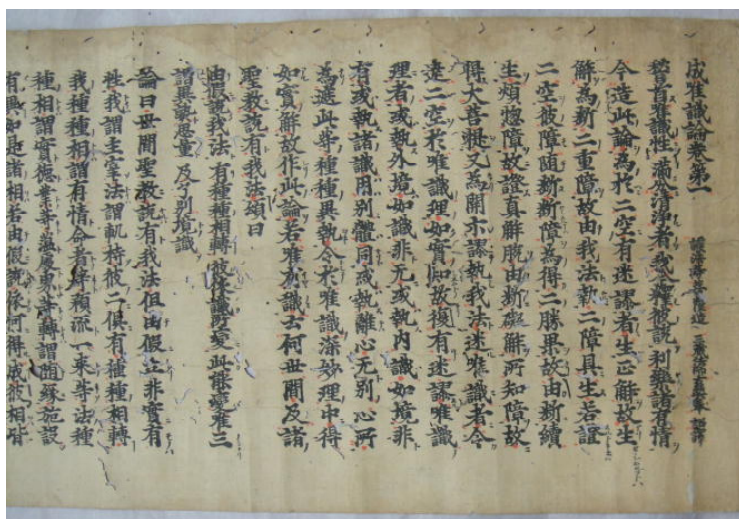 成唯識論卷第一 護法等菩薩造 三藏法師玄奘奉 詔譯
稽首唯識性 滿分清淨者 我今釋彼說 利樂諸有情
今造此論為於二空有迷謬者生正解故生
解為斷二重障故由我法執二障具生若證
二空彼障隨斷斷障為得二勝果故由斷續
生煩惱障故證真解脫由斷礙解所知障故
得大菩提又為開示謬執我法迷唯識者令
達二空於唯識理如實知故復有迷謬唯識
理者或執外境如識非无或執內識如境非
有或執諸識用別體同或執離心无別心所
為遮此等種種異執令於唯識深妙理中得
如實解故作此論若唯有識云何世間及諸
聖教說有我法頌曰
由假說我法 有種種相轉 彼依識所變 此能變唯三
謂異熟思量 及了別境識
論曰世間聖教說有我法但由假立非實有
性我謂主宰法謂軌持彼二俱有種種相轉
我種種相謂有情命者等預流一來等法種
種相謂實德業等蘊處界等轉謂隨緣施設
有異如是諸相若由假說依何得成彼相皆